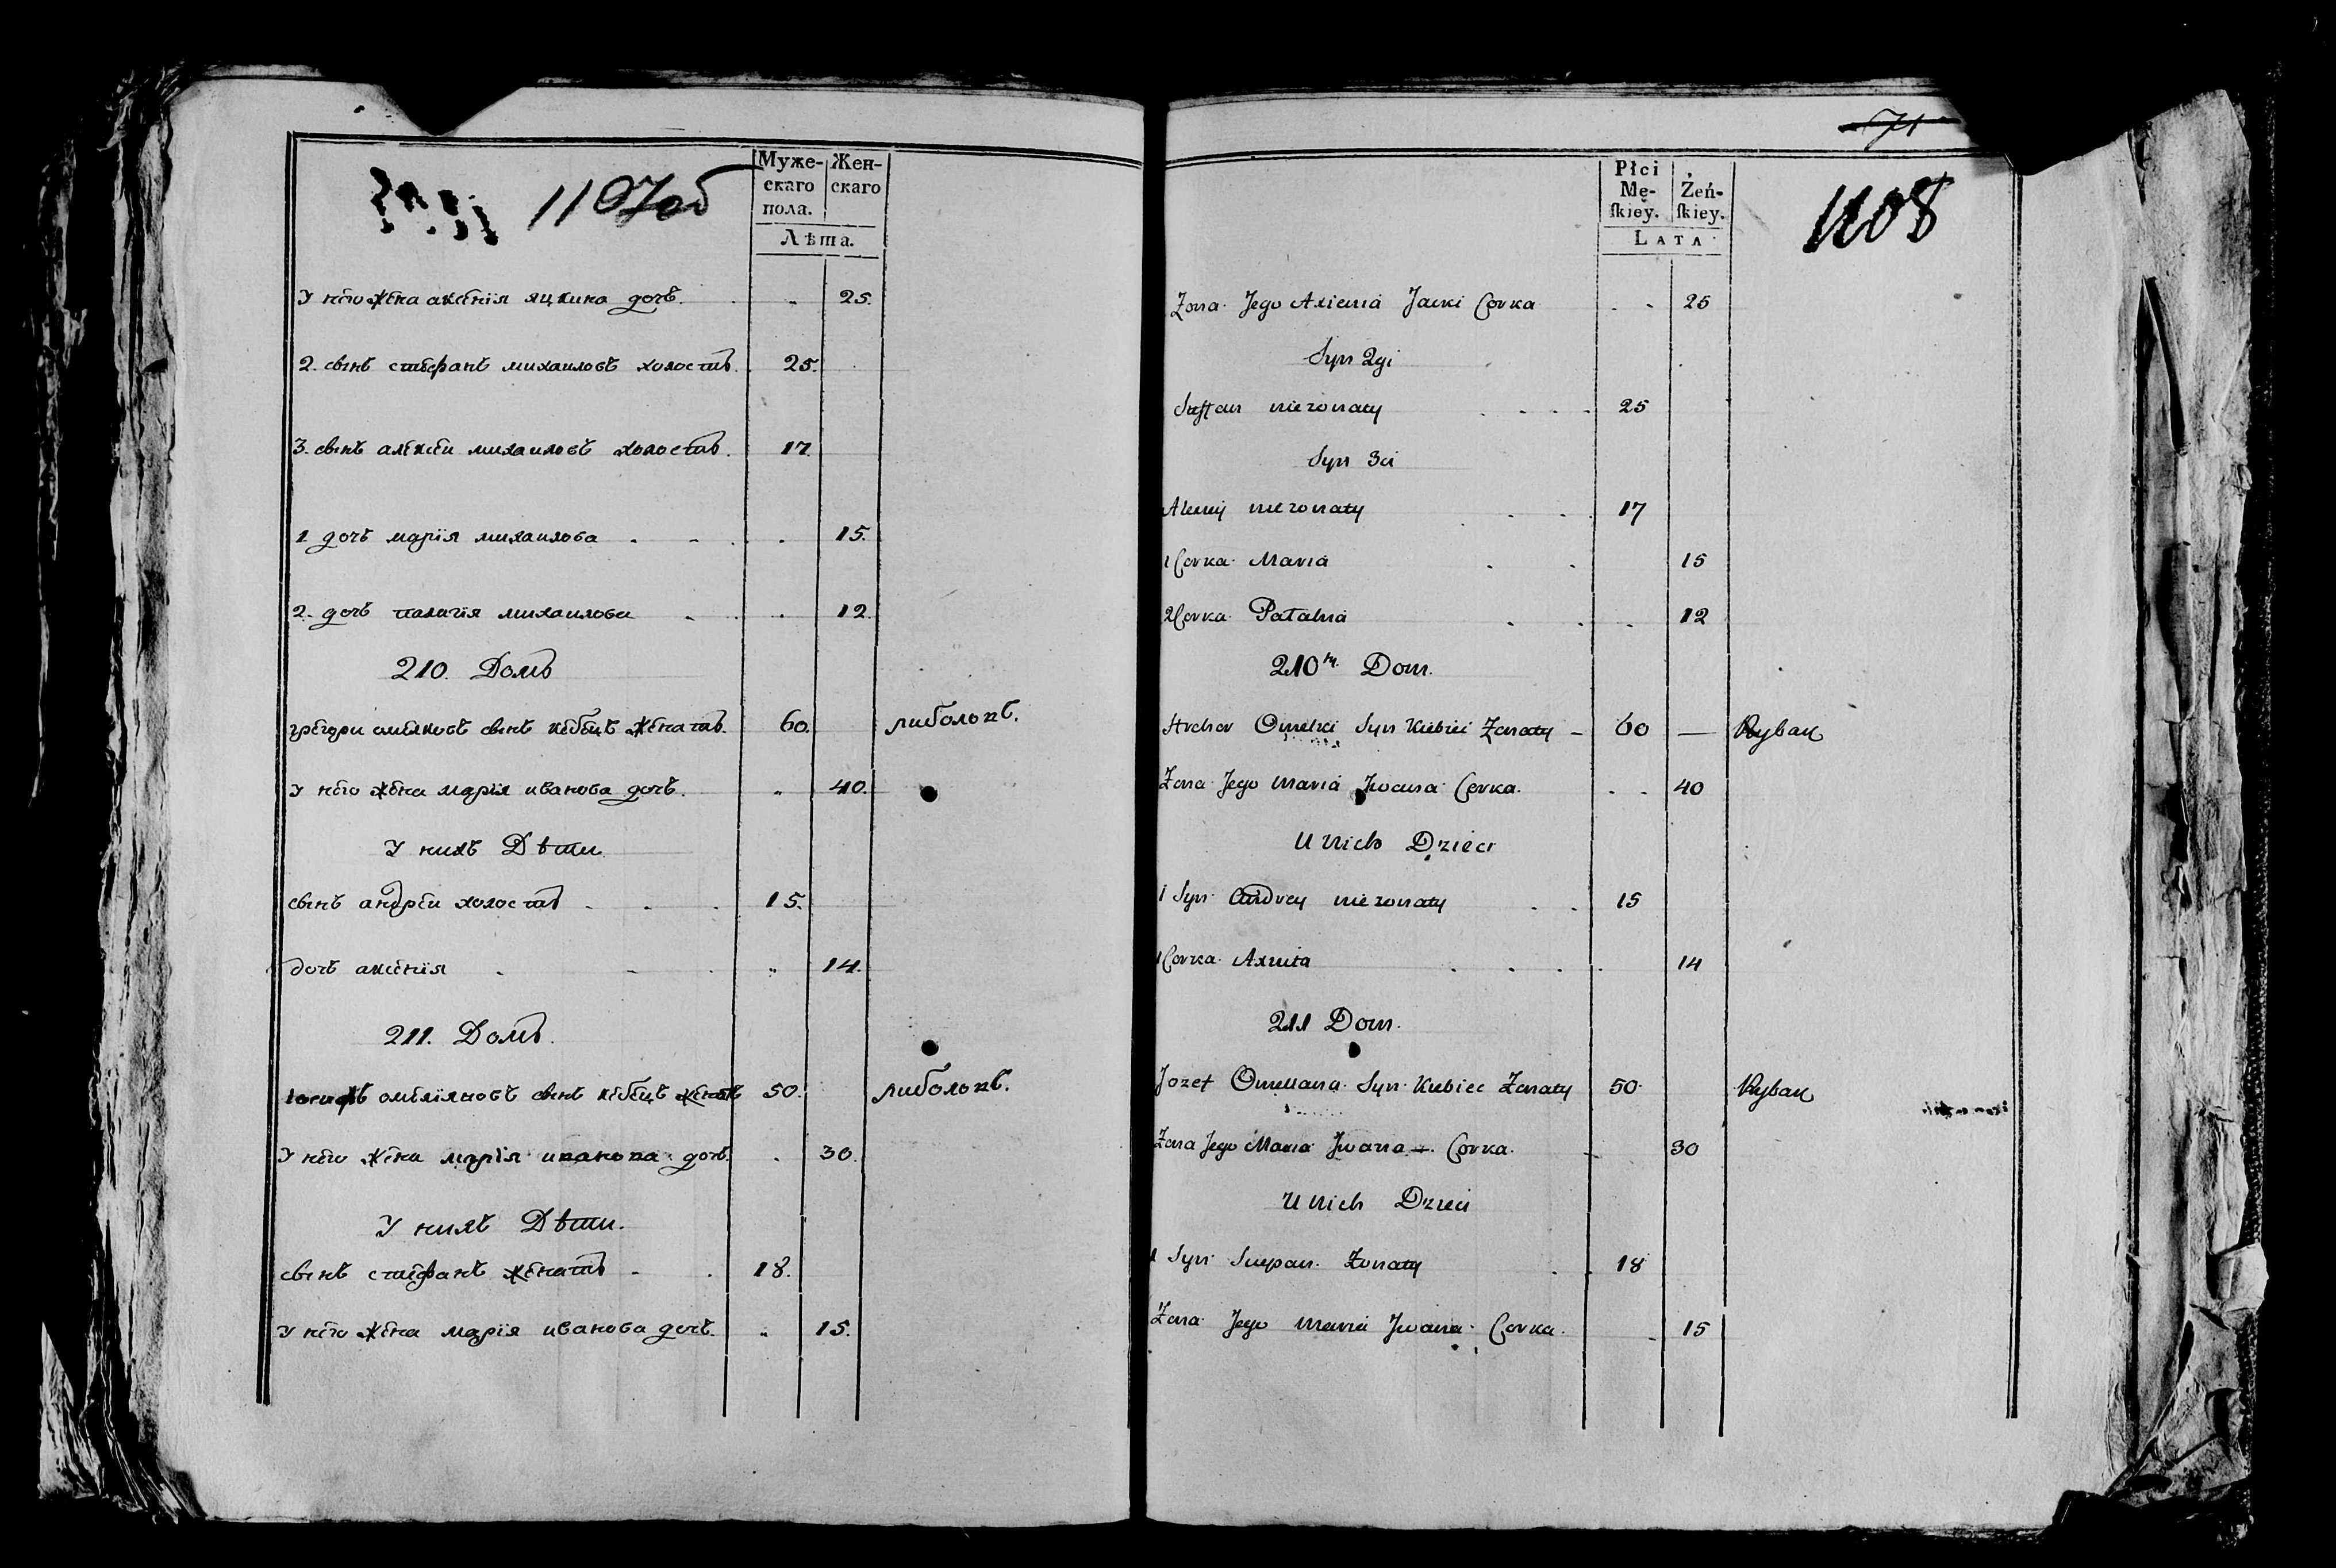 1107об
Муже-
скаго
пола.
Жен-
скаго
Лѣта.
у него жена аксения яцкина дочь. 25.
2. сынъ стефанъ михаиловъ холостъ. 25.
3. сынъ алексеи михаиловъ холостъ. 17
1 дочь марія михаилова 15.
2. дочь палагія михаилова 12.
210. Домъ
грегори омелковъ сынъ кебецъ женатъ. 60. риболовъ.
у него жена марія иванова дочь. 40.
У нихъ Дѣти
сынъ андреи холостъ 15.
дочь аксенія 14.
211. Домъ.
іосифъ омеляновъ сынъ кебецъ женатъ 50. риболовъ.
у него жена марія иванова дочь. 30.
У нихъ Дѣти.
сынъ стефанъ женатъ 18.
у него жена марія иванова дочь. 15.
71
1108
Płci
Mę-
ſkiey.
Żeń-
ſkiey.
LATA
Zona Jego Axienia Jacki Corka 25
Syn 2gi
Steffan niezonaty 25
Syn 3ci
Alexiey niezonaty 17
1 Corka Maria 15
2 Corka Patahia 12
210ty. Dom.
Hrehor Omelki Syn Kiebiec Zonaty 60 Rybak
Zona Jego Maria Jwana Corka. 40
U Nich Dzieci
1 Syn Andrey niezonaty 15
1 Corka Axinia 14
211 Dom.
Jozef Omeliana Syn Kiebiec Zonaty 50 Rybak
Zona Jego Maria Jwana Corka. 30
U Nich Dzieci
1 Syn Stepan Zonaty 18
Zona Jego Maria Jwana Corka. 15